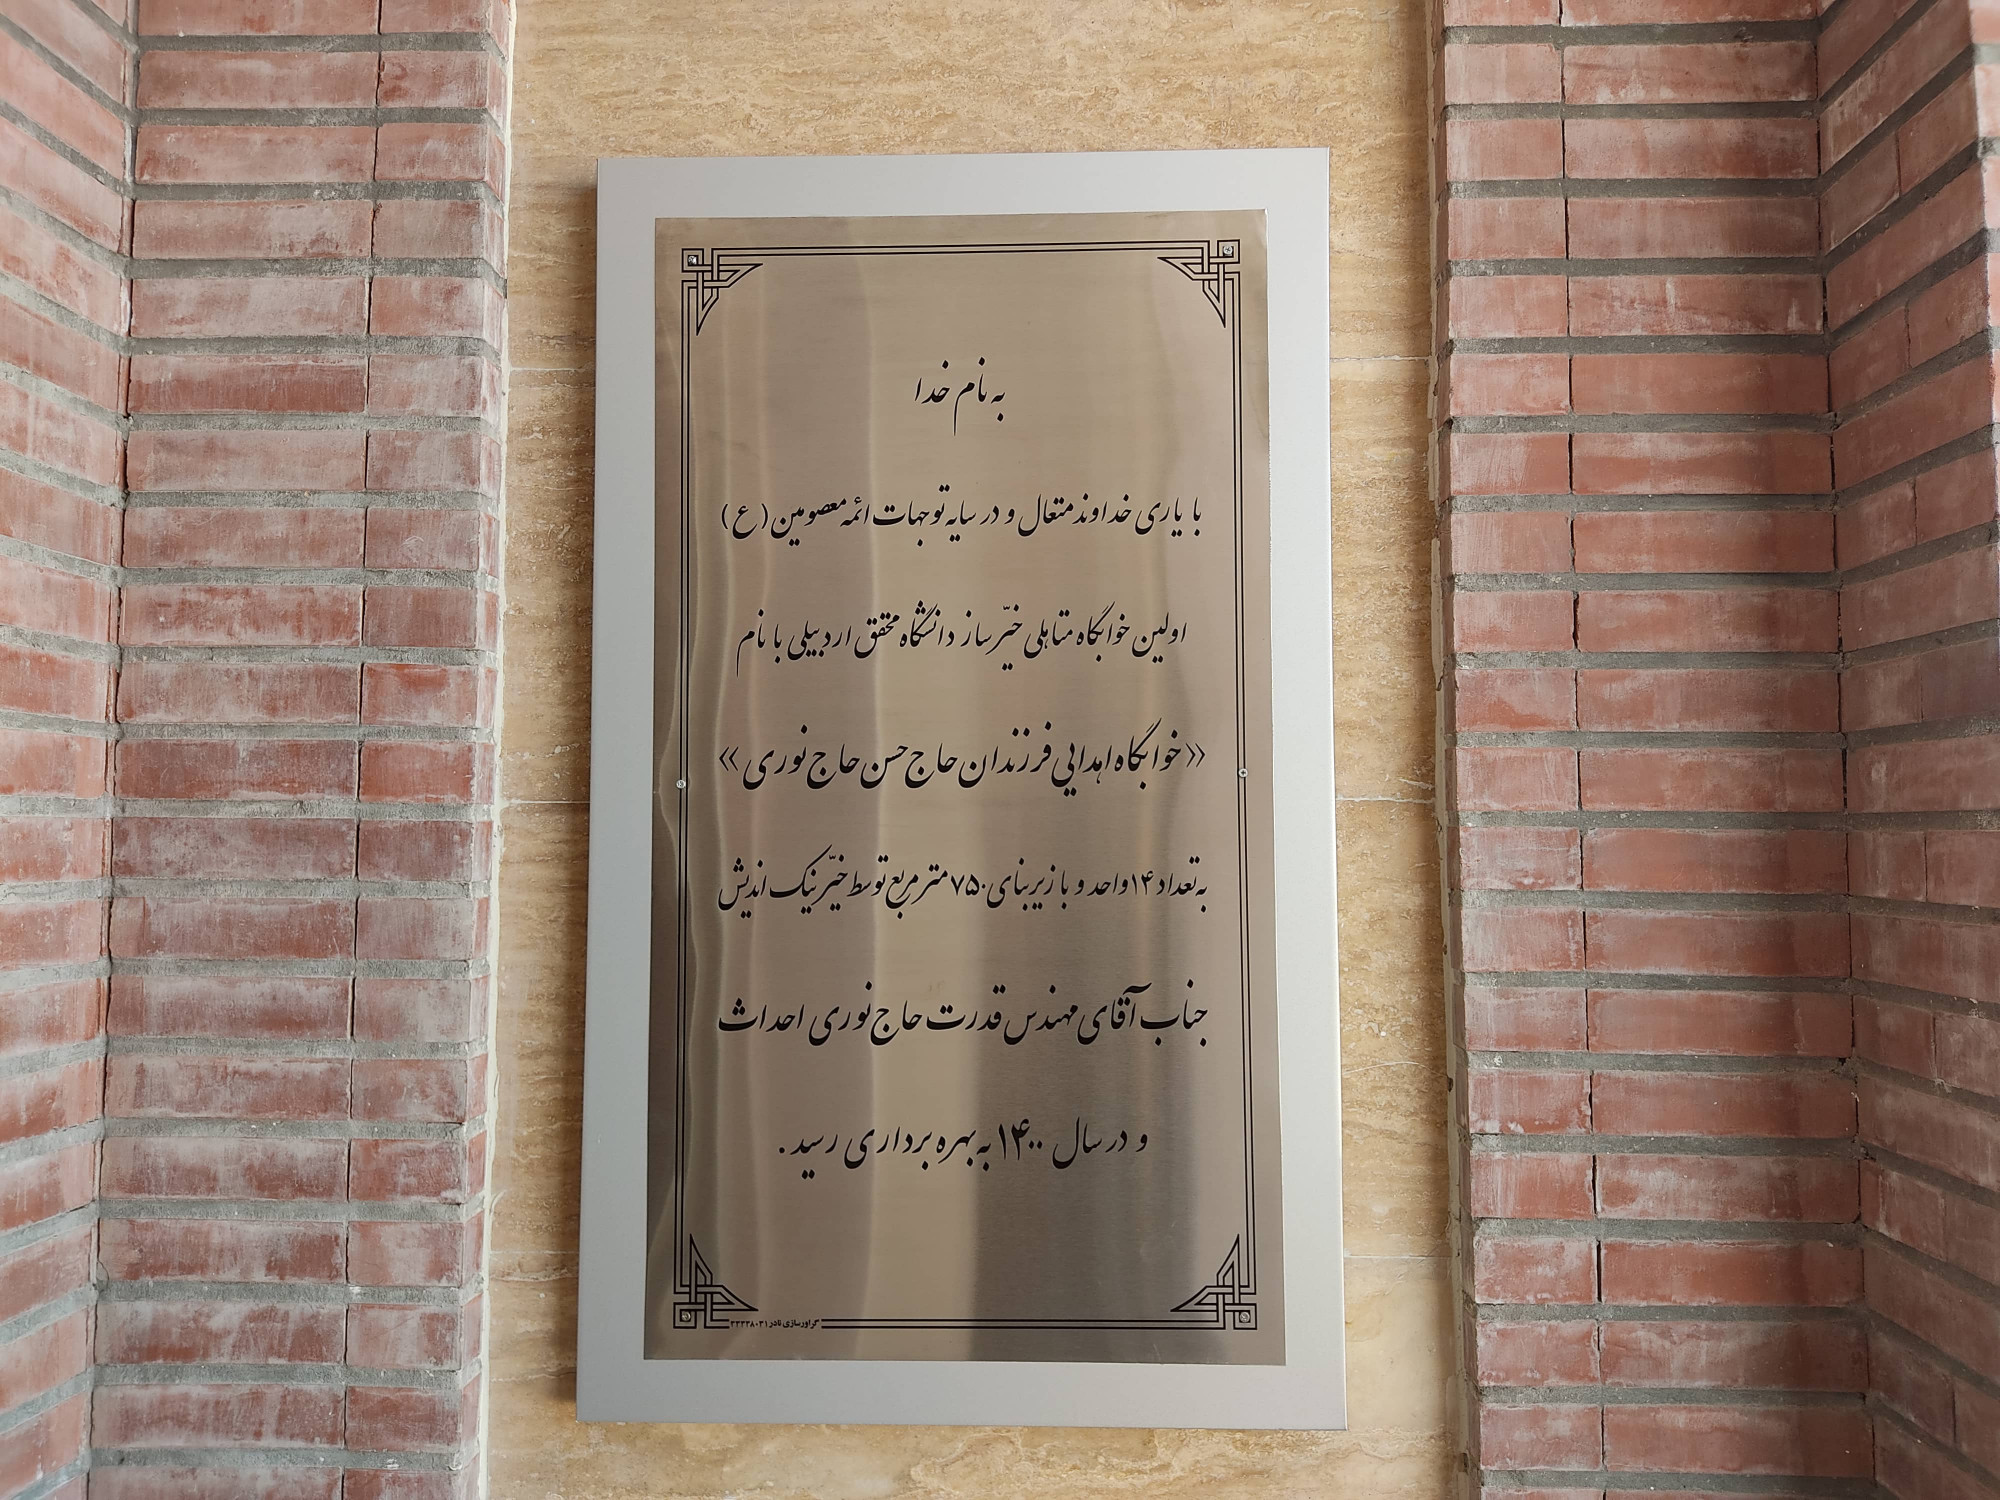 به نام خدا
با یاری خداوند متعال و در سایه توجهات ائمه معصومین (ع)
اولین خوابگاه متاهلی خیّرساز دانشگاه محقق اردبیلی با نام
«خوابگاه اهدایی فرزندان حاج حسن حاج نوری»
به تعداد ۱۴ واحد و با زیربنای ۷۵۰ متر مربع توسط خیّر نیک اندیش
جناب آقای مهندس قدرت حاج نوری احداث
و در سال ۱۴۰۰ به بهره برداری رسید.
گراورسازی نادر ۳۳۳۳۸۰۳۱